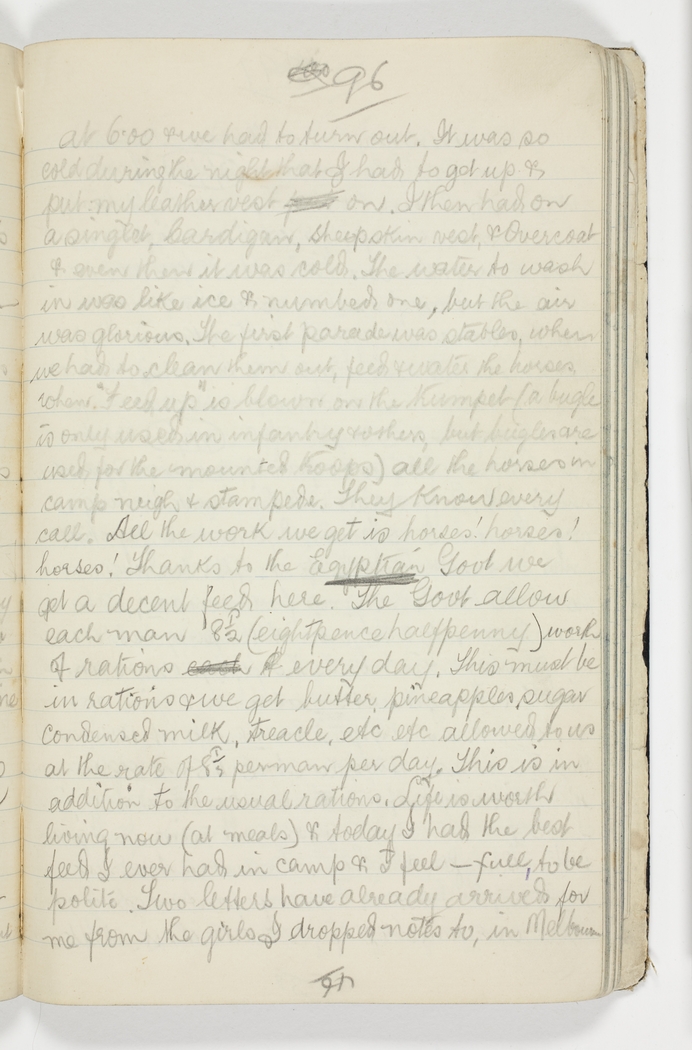 96
at 6.00 & we had to turn out. It was so
cold during the night that I had to get up &
put my leather vest on. I then had on
a singlet, Cardigan, sheepskin vest, & Overcoat
& even then it was cold. The water to wash
in was like ice & numbed one, but the air
was glorious. The first parade was stables, when
we had to clean them out, feed & water the horses,
when "Feed up" is blown on the trumpet (a bugle
is only used in infantry & others, but bugles are
used for the mounted troops) all the horses in
camp neigh & stampede. They know every
call. All the work we get is horses! horses!
horses! Thanks to the Egyptian Govt we
get a decent feed here. The Govt allow
each man 8½ (eightpence halfpenny) worth
of rations every day. This must be
in rations & we get butter, pineapples, sugar
condensed milk, treacle, etc etc allowed to us
at the rate of 8½ per man per day. This is in
addition to the usual rations. Life is worth
living now (at meals) & today I had the best
feed I ever had in camp & I feel — full, to be
polite. Two letters have already arrived for
me from the girls I dropped notes to, in Melbourne